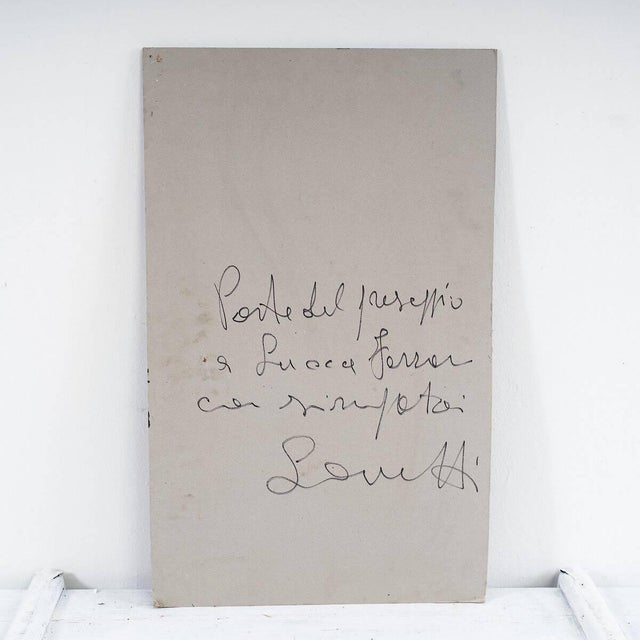 Porte del preseppio
a Lucca Ferrari
con simpatai
Lovetti